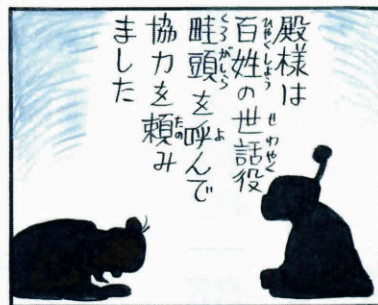 殿様は
百姓の世話役
畦頭を呼んで
協力を頼み
ました